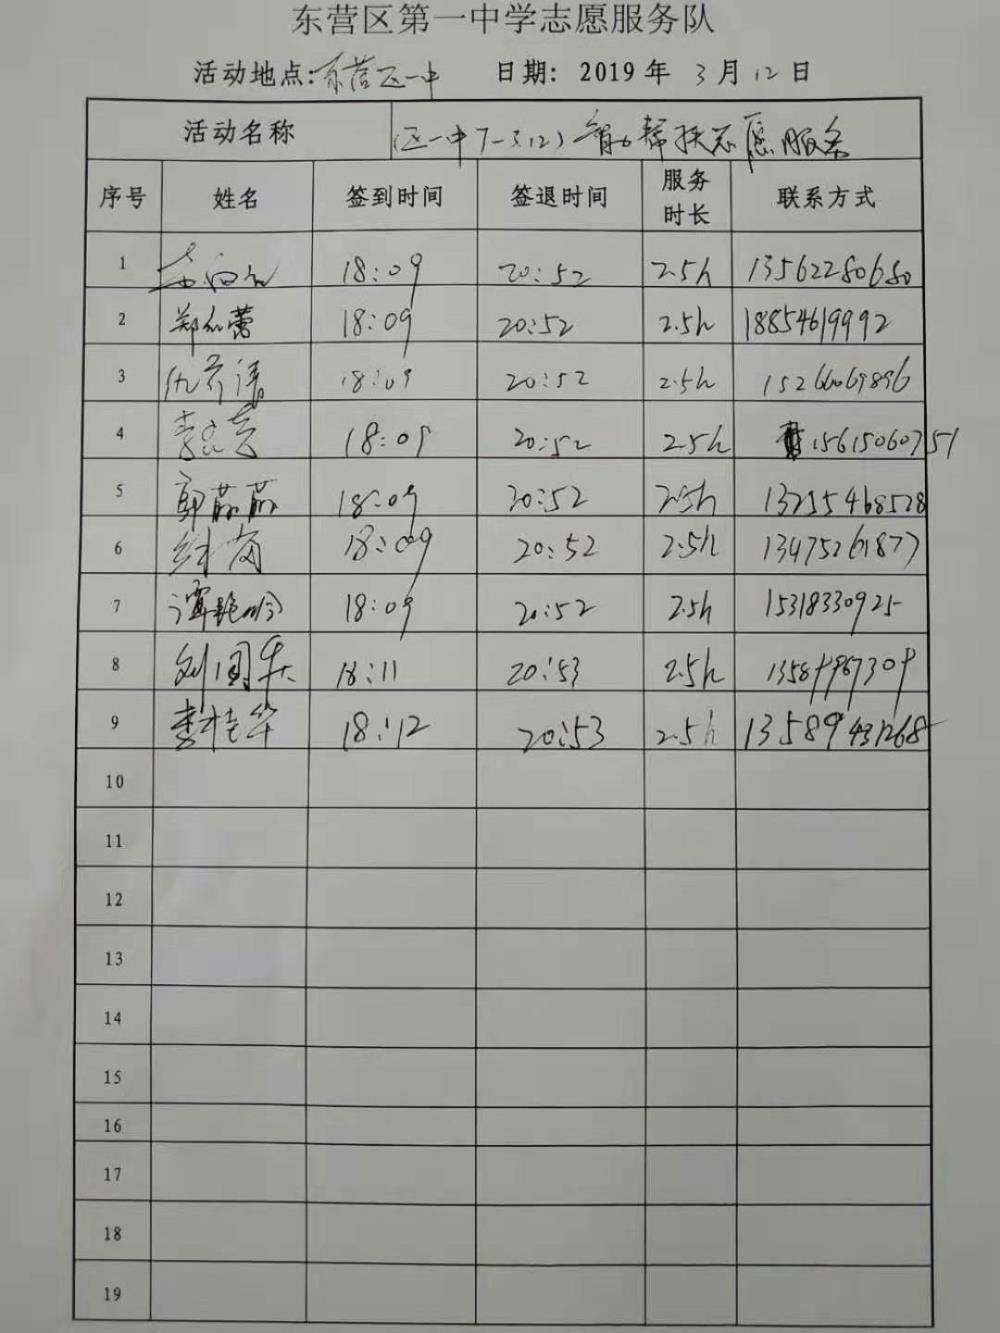 东营区第一中学志愿服务队
活动地点:东营区一中 日期: 2019 年 3 月 12 日
活动名称 区一中 帮扶志愿服务
序号 姓名 签到时间 签退时间 服务时长 联系方式
1 18:09 20:52 2.5h 13562280680
2 18:09 20:52 2.5h 18854619992
3 18:09 20:52 2.5h 15266069896
4 18:09 20:52 2.5h 15615060751
5 18:09 20:52 2.5h 13255468528
6 18:09 20:52 2.5h 13475261877
7 谭艳玲 18:09 20:52 2.5h 15318330925
8 18:11 20:53 2.5h 13589967309
9 李桂华 18:12 20:53 2.5h 13589431268
10
11
12
13
14
15
16
17
18
19